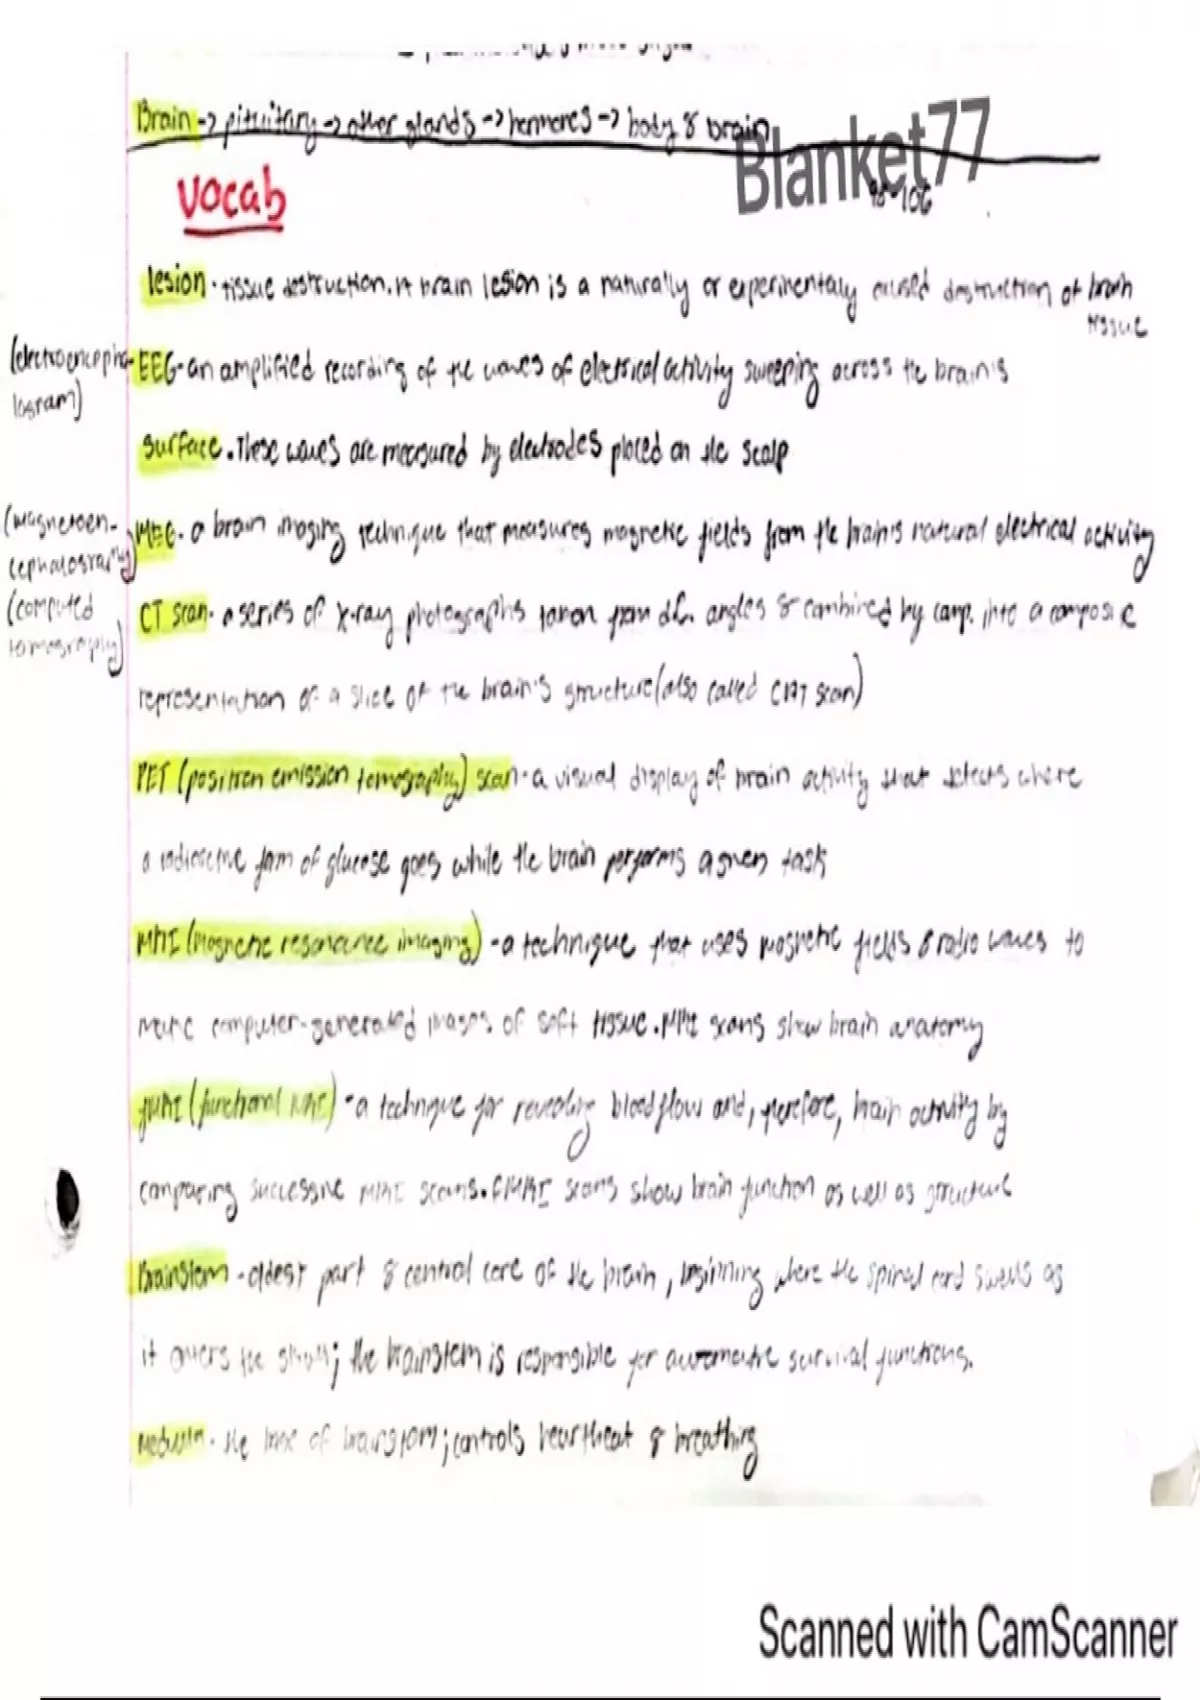 Brain -> pituitary -> other glands -> hormones -> body & brain
Blanket77
vocab
98-106
lesion - tissue destruction. A brain lesion is a naturally or experimentaly caused destruction of brain
tissue
(electroencepha-
logram)
EEG - an amplified recording of the waves of electrical activity sweeping across the brain's
surface. These waves are measured by electrodes placed on the scalp
(magnetoen-
cephalography)
MEG - a brain imaging technique that measures magnetic fields from the brain's natural electrical activity
(computed
tomography)
CT scan - a series of x-ray photographs taken from dif. angles & combined by comp. into a composite
representation of a slice of the brain's structure (also called CAT scan)
PET (positron emission tomography) scan - a visual display of brain activity that detects where
a radioactive form of glucose goes while the brain performs a given task
MRI (magnetic resonance imaging) - a technique that uses magnetic fields & radio waves to
make computer-generated images of soft tissue. MRI scans show brain anatomy
fMRI (functional MRI) - a technique for revealing bloodflow and, therefore, brain activity by
comparing successive MRI scans. fMRI scans show brain function as well as structure
Brainstem - oldest part & central core of the brain, beginning where the spinal cord swells as
it enters the skull; the brainstem is responsible for automatic survival functions.
Medulla - the base of brainstem; controls heartbeat & breathing
Scanned with CamScanner